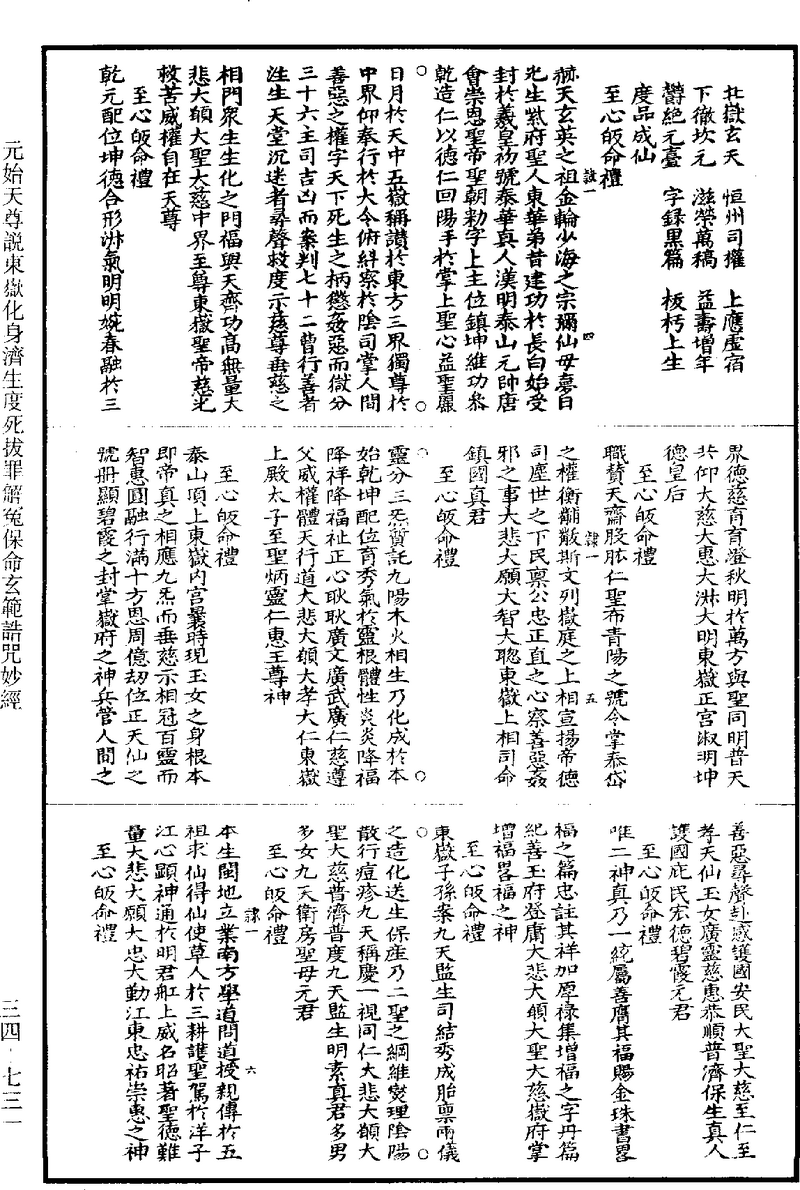 北嶽玄天　恒州司權　上應虛宿
下徹坎元　滋榮萬稿　益壽增年
欝絕元臺　字録黒篇　板朽上生
度品成仙
至心皈命禮
隷一　四
赫天玄英之祖金輪少海之宗彌仙母夢日
光生紫府聖人東華弟昔建功於長白始受
封於羲皇初號泰華真人漢明泰山元帥唐
會崇恩聖帝聖朝勑字上主位鎮坤維功參
乾造仁以德仁回陽手於掌上聖心益聖厲
日月於天中五嶽稱讃於東方三界獨尊於
中界仰奉行於大令俯糾察於陰司掌人間
善惡之權字天下死生之柄懲姦惡而獄分
三十六主司吉凶而案判七十二曹行善者
注生天堂沉迷者尋聲救度示慈尊垂慈之
相門衆生生化之門福與天齊功高無量大
悲大願大聖大慈中界至尊東嶽聖帝慈光
救苦威權自在天尊
至心皈命禮
乾元配位坤德合形淋氣明明婉春融於三
界德慈育育澄秋明於萬方與聖同明普天
共仰大慈大惠大淋大明東嶽正宮淑明坤
德皇后
至心皈命禮
職賛天齋股肱仁聖布青陽之號令掌泰岱
隷一　五
之權衡黼黻斯文列嶽庭之上相宣揚帝德
司塵世之下民禀公忠正直之心察善惡姦
邪之事大悲大願大智大聦東嶽上相司命
鎮國真君
至心皈命禮
靈分三炁質託九陽木火相生乃化成於本
始乾坤配位育秀氣於靈根體性炎炎降福
降祥降福祉正心耿耿廣文廣武廣仁慈遵
父威權體天行道大悲大願大孝大仁東嶽
上殿太子至聖炳靈仁惠王尊神
至心皈命禮
泰山頂上東嶽内宮曩時現玉女之身根本
即帝真之相應九炁而垂慈示相冠百靈而
智惠圓融行滿十方恩周億刧位正天仙之
號冊顯碧霞之封掌嶽府之神兵管人間之
善惡尋聲赴感護國安民大聖大慈至仁至
孝天仙玉女廣靈慈惠恭順普濟保生真人
護國庇民宏德碧霞元君
至心皈命禮
唯二神真乃一統屬善膺其福賜金珠書畧
福之篇忠註其祥加厚禄集增福之字丹篇
紀善玉府登庸大悲大願大聖大慈嶽府掌
增福畧福之神
至心皈命禮
東嶽子孫案九天監生司結秀成胎禀兩儀
之造化送生保産乃二聖之綱維燮理陰陽
散行痘疹九天稱慶一視同仁大悲大願大
聖大慈普濟普度九天監生明素真君多男
多女九天衛房聖母元君
至心皈命禮
隷一　六
本生閩地立業南方學道問道授親傳於五
祖求仙得仙使草人於三耕護聖駕於洋子
江心顯神通於明君舡上威名昭著聖德難
量大悲大願大忠大勤江東忠祐崇惠之神
至心皈命禮
元始天尊説東嶽化身濟生度死拔罪解冤保命玄範誥咒妙經
三四·七三一